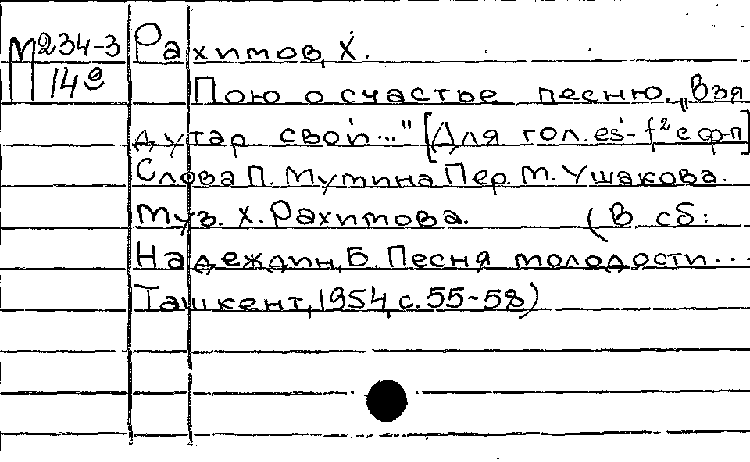 М234-3 Рахимов, Х.
149
Пою о счастье песню. „Взя
дутар свой..." [Для гол. es¹-f² с ф-п]
Слова П. Мумина Пер. М. Ушакова.
Муз. Х. Рахимова. (В сб:
Надеждин, Б. Песня молодости...
Ташкент, 1954, с. 55-58)